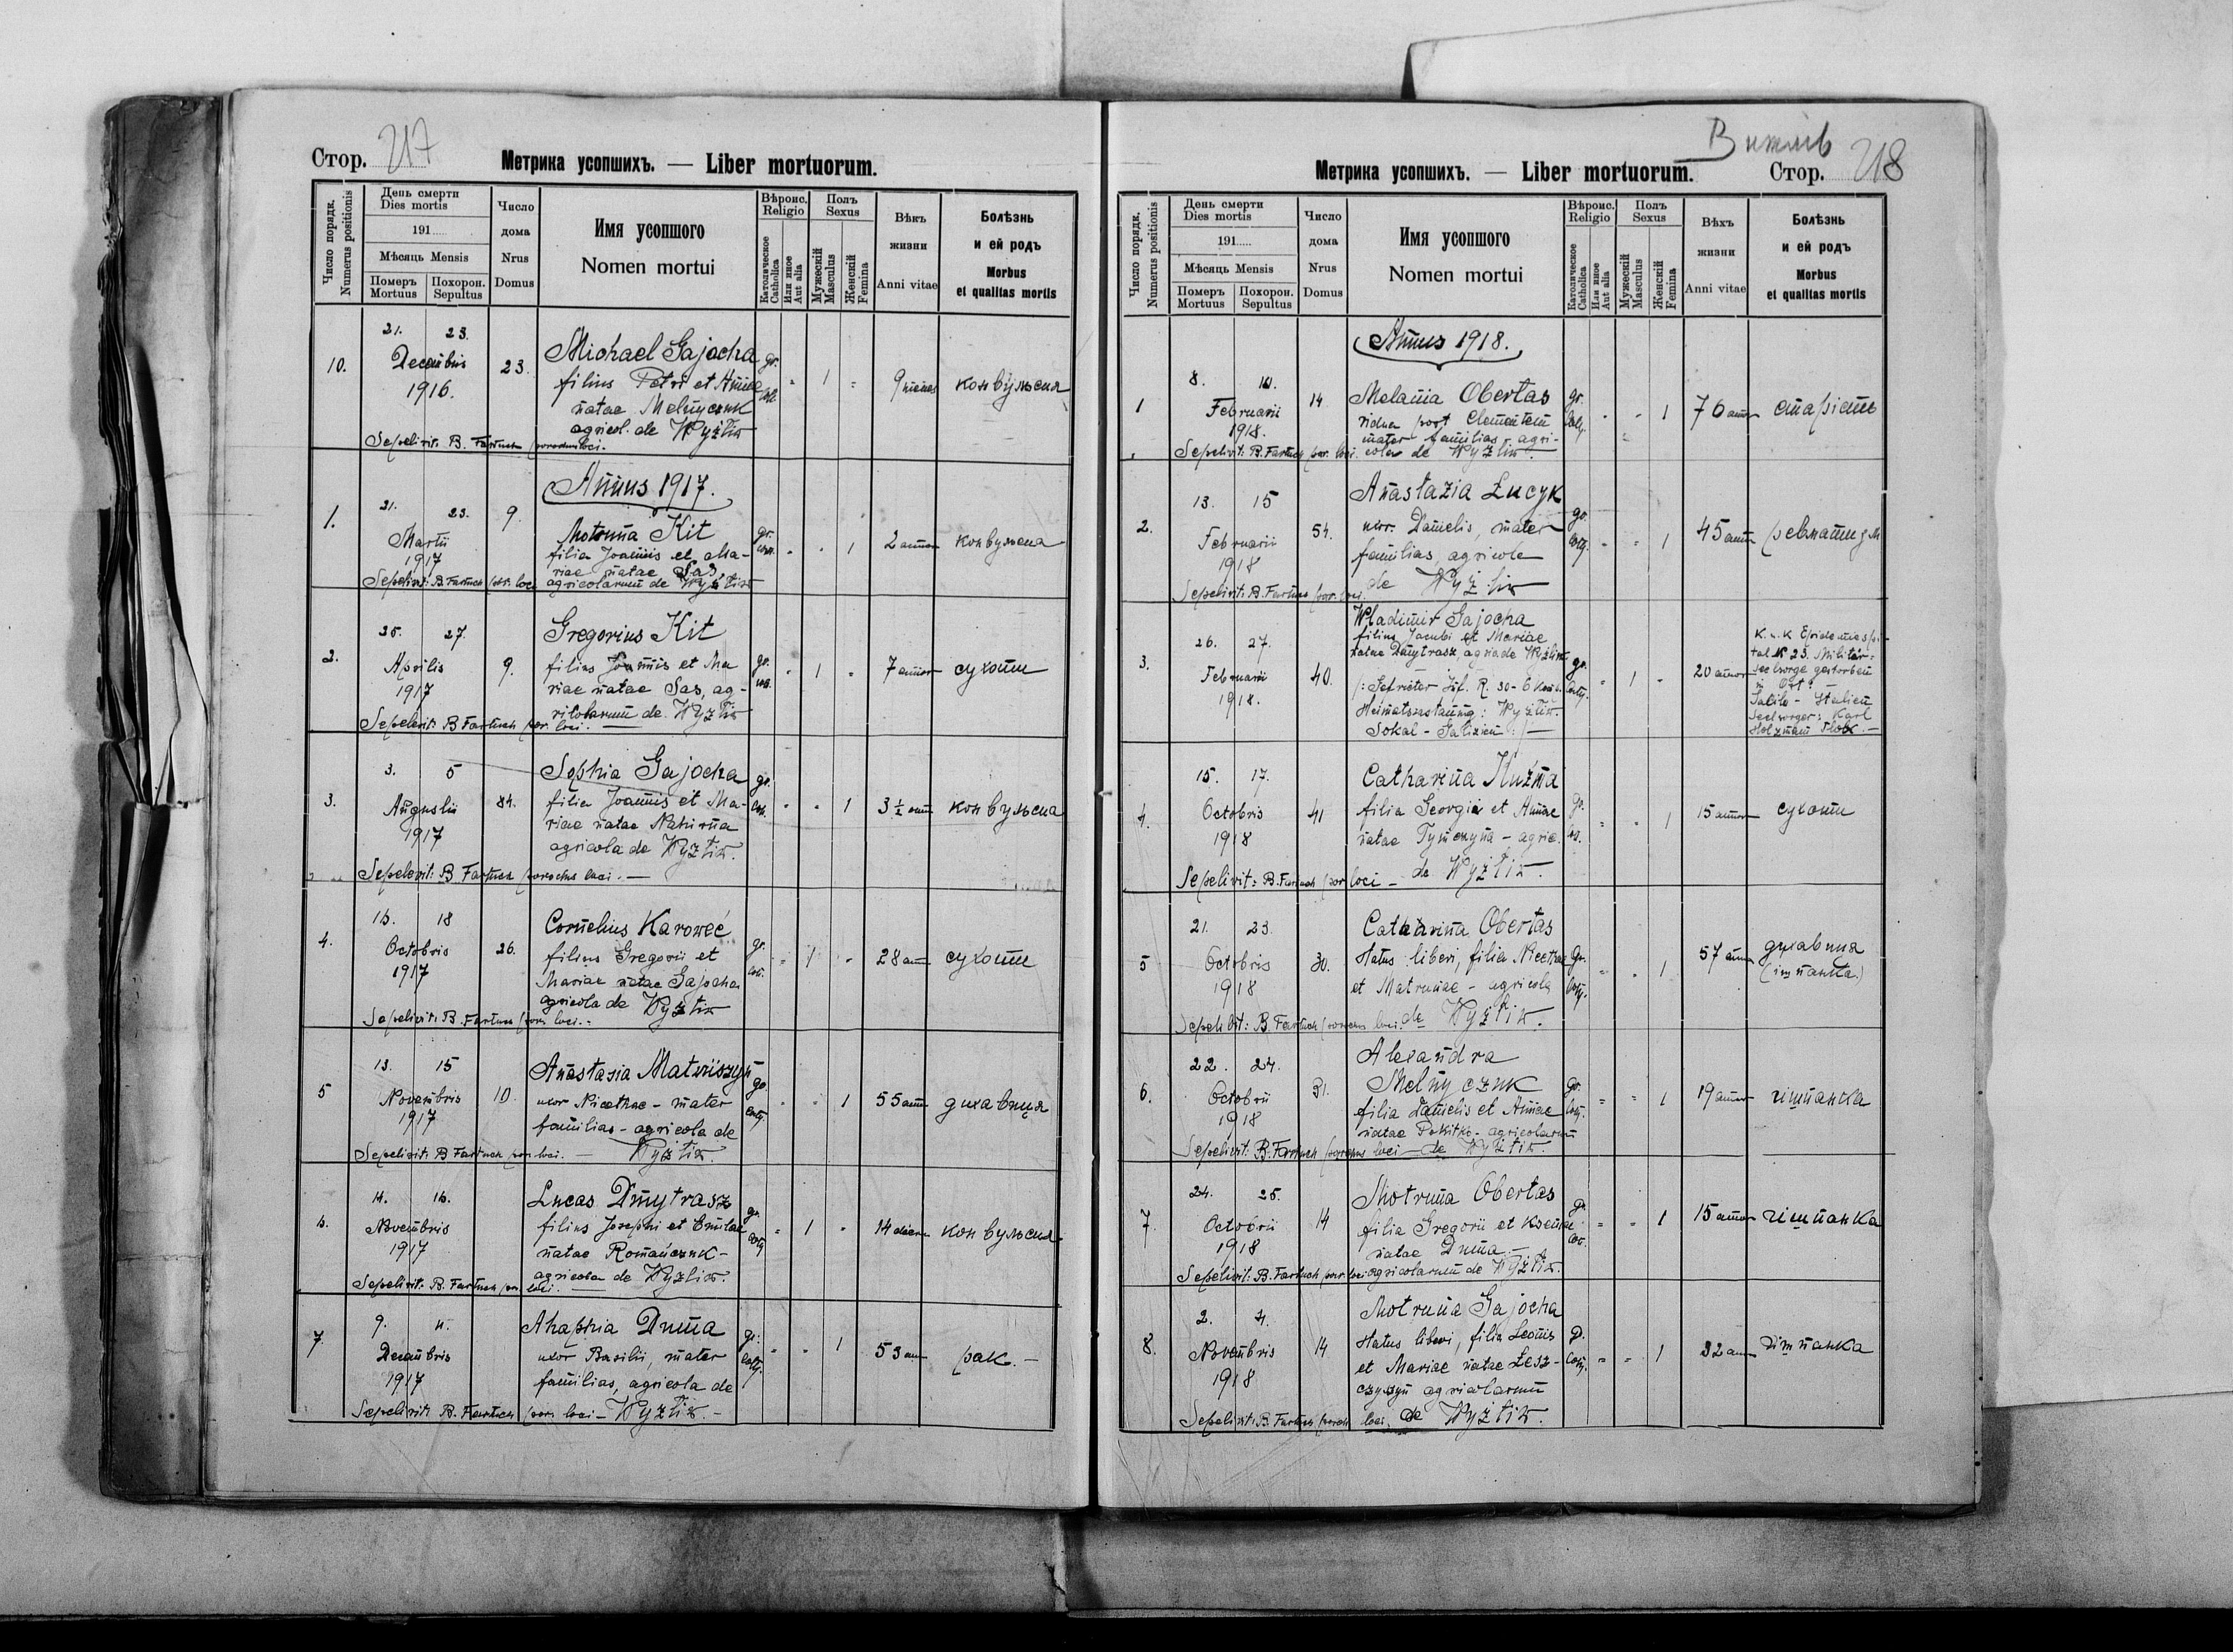 Стор. 217
Метрика усопшихъ. — Liber mortuorum.
Число порядк.
Numerus positionis
День смерти
Dies mortis
191
Мѣсяць Mensis
Померъ
Mortuus
Похорон.
Sepultus
Число
дома
Nrus
Domus
Имя усопшого
Nomen mortui
Вѣроис.
Religio
Католическое
Catholica
Или иное
Aut alia
Полъ
Sexus
Мужескій
Masculus
Женскій
Femina
Вѣкъ
жизни
Anni vitae
Болѣзнь
и ей родъ
Morbus
et qualitas mortis
10. 21. 23. Decembris 1916. 23.
Michael Gajocha
filius Petri et Annae
natae Melnyczuk
agricol. de Wyżłiw
gr. cath. 1 9 menses конвульсия
Sepelivit: B. Fartuch parochus loci.
Annus 1917.
1. 21. 23. Martii 1917 9.
Motruna Kit
filia Joannis et Ma-
riae natae Sas,
agricolarum de Wyżłiw
gr. cath. 1 2 annor конвульсиа
Sepelivit: B Fartuch par. loci
2. 25. 27. Aprilis 1917 9.
Gregorius Kit
filius Joannis et Ma
riae natae Sas, ag-
ricolarum de Wyżłiw
gr. cath. 1 7 annor сухоти
Sepelivit: B Fartuch par. loci.
3. 3. 5 Augustii 1917 84.
Sophia Gajocha
filia Joannis et Ma-
riae natae Nahirna
agricola de Wyżłiw.
gr. cath. 1 3 ½ ann конвульсиа
Sepelivit: B Fartuch parochus loci. —
4. 16. 18 Octobris 1917 26.
Cornelius Karoweć
filius Gregorii et
Mariae natae Gajocha
agricola de Wyżłiw
gr. cath. 1 28 ann сухоти
Sepelivit: B. Fartuch par. loci. -
5 13. 15 Novembris 1917 10.
Anastasia Matwiiszyn
uxor Nicetae - mater
familias - agricola de
Wyżłiw.
gr. cath. 1 55 ann дихавиця
Sepelivit: B Fartuch par. loci. —
6. 14. 16. Novembris 1917
Lucas Dmytrasz
filius Josephi et Emilae
natae Romańczuk -
agricola de Wyżłiw.
gr. cath 1 14 dierum конвульсиа
Sepelivit: B. Fartuch par. loci.
7 9. 11. Decembris 1917
Ahaphia Duma
uxor Basilii, mater
familias, agricola de
Wyżłiw. -
gr. cath. 1 53 ann рак. —
Sepelivit B. Fartuch par. loci -
Вижлів
Метрика усопшихъ. — Liber mortuorum.
Стор. 218
Число порядк.
Numerus positionis
День смерти
Dies mortis
191
Мѣсяць Mensis
Померъ
Mortuus
Похорон.
Sepultus
Число
дома
Nrus
Domus
Имя усопшого
Nomen mortui
Вѣроис.
Religio
Католическое
Catholica
Или иное
Aut alia
Полъ
Sexus
Мужескій
Masculus
Женскій
Femina
Вѣхъ
жизни
Anni vitae
Болѣзнь
и ей родъ
Morbus
et qualitas mortis
Annus 1918.
1 8. 10. Februarii 1918. 14
Melania Obertas
vidua post Clementem
mater familias - agri-
cola de Wyżłiw.
gr. cath. 1 76 annor старість
Sepelivit: B. Fartuch par. loci.
2. 13. 15 Februarii 1918 54.
Anastazia Łucyk
uxor. Danielis, mater
familias, agricola
de Wyżłiw
gr. cath. 1 45 ann ревматизм
Sepelivit: B. Fartuch par. loci.
3. 26. 27. Februarii 1918. 40.
Wladimir Gajocha
filius Jacobi et Mariae
natae Dmytrasz, agr. de Wyżłiw
/: Gefreiter Inf. R. 30 - 6 Komp.
Heimatszustaning: Wyżłiw.
Sokal - Galizien :/ —
gr. cath. 1 20 annor
K. u. K Epidemiespi-
tal № 23. Militär-
seelsorge gestorben
in Ort:
Sacile - Italien
Seelsorger: Karl
Holzmann
4. 15. 17. Octobris 1918 41
Catharina Kuźma
filia Georgii et Annae
natae Tymczyna - agric.
de Wyżłiw.
gr. ca. 1 15 annor сухоти
Sepelivit: B. Fartuch par loci -
5 21. 23. Octobris 1918 30.
Catharina Obertas
status liberi, filia Nicetae
et Matrunae - agricola
de Wyżłiw.
Gr. cath. 1 57 ann дихавиця
(іспанка)
Sepelivit: B. Fartuch parochus loci.
6. 22. 24. Octobrii 1918 31.
Alexandra
Melnyczuk
filia Danielis et Annae
natae Pokitko - agricolarum
de Wyżłiw.
gr. cath. 1 19 annor гішпанка
Sepelivit: B. Fartuch parochus loci -
7. 24. 25. Octobrii 1918 14
Motruna Obertas
filia Gregorii et Kseniae
natae Duma. -
agricolarum de Wyżłiw.
gr. cat. 1 15 annor гішпанка
Sepelivit: B. Fartuch par loci
8. 2. 4. Novembris 1918 14
Motruna Gajocha
status liberi, filia Leonis
et Mariae natae Łesz-
czyszyn agricolarum
de Wyżłiw.
gr. cath. 1 32 ann гішпанка
Sepelivit: B. Fartuch paroch loci.